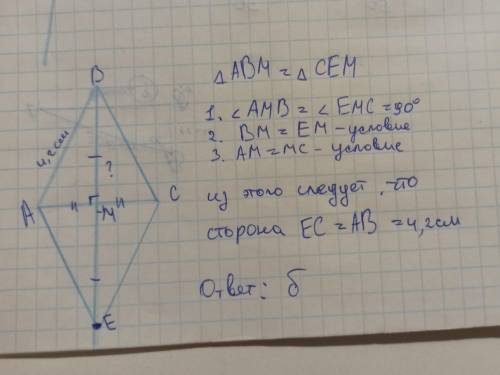 B
4,2см
?
A
C
M
E
△ABM = △CEM
1. ∠AMB = ∠EMC = 90°
2. BM = EM - условие
3. AM = MC - условие
из этого следует, что
сторона EC = AB = 4,2см
Ответ: б